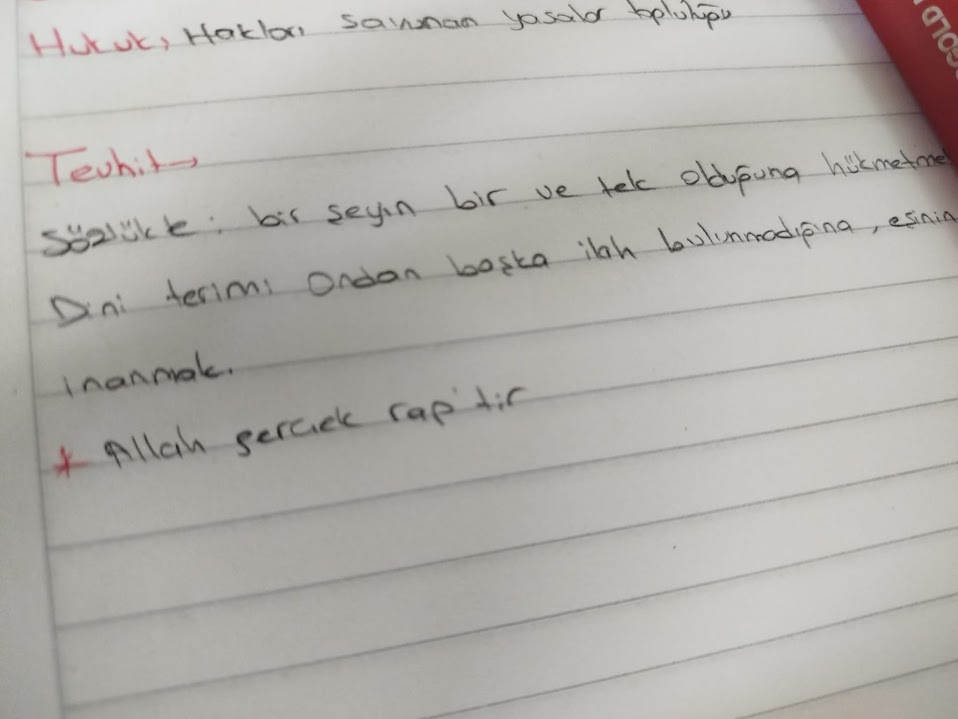 Hukuk, Hakları savunan yasalar topluluğu
GOLD
Tevhit →
Sözlükte: bir şeyin bir ve tek olduğuna hükmetmek
Dini terim: Ondan başka ilah bulunmadığına, eşinin
inanmak.
* Allah gerçek rap'tir